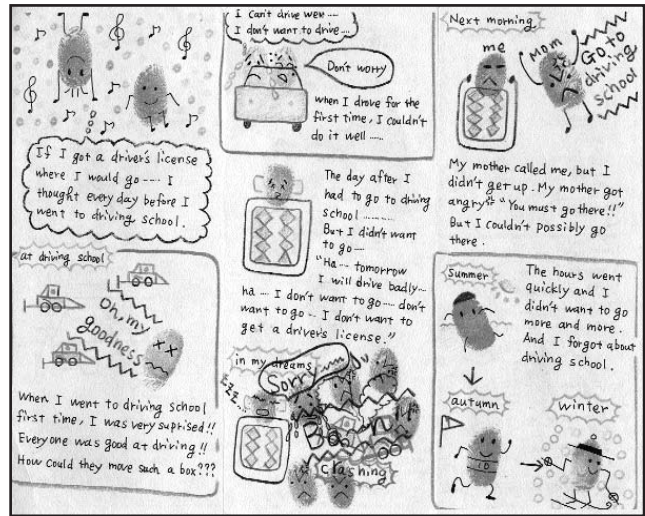 If I got a driver's license
where I would go ---- I
thought every day before I
went to driving school.
at driving school
Oh, my
goodness
When I went to driving school
first time, I was very suprised!!
Everyone was good at driving!!
How could they move such a box???
I can't drive well ----
I don't want to drive ----
Don't worry
when I drove for the
first time, I couldn't
do it well ----
The day after I
had to go to driving
school ----
But I didn't want
to go --
"Ha --- tomorrow
I will drive badly --
ha --- I don't want to go --- don't
want to go -- I don't want to
get a driver's license."
in my dreams
Sorry
zzz...
clashing
Next morning
me
Mom
Go to
driving
school
My mother called me, but I
didn't get up. My mother got
angry "You must go there!!"
But I couldn't possibly go
there.
Summer
The hours went
quickly and I
didn't want to go
more and more.
And I forgot about
driving school.
autumn
10
winter